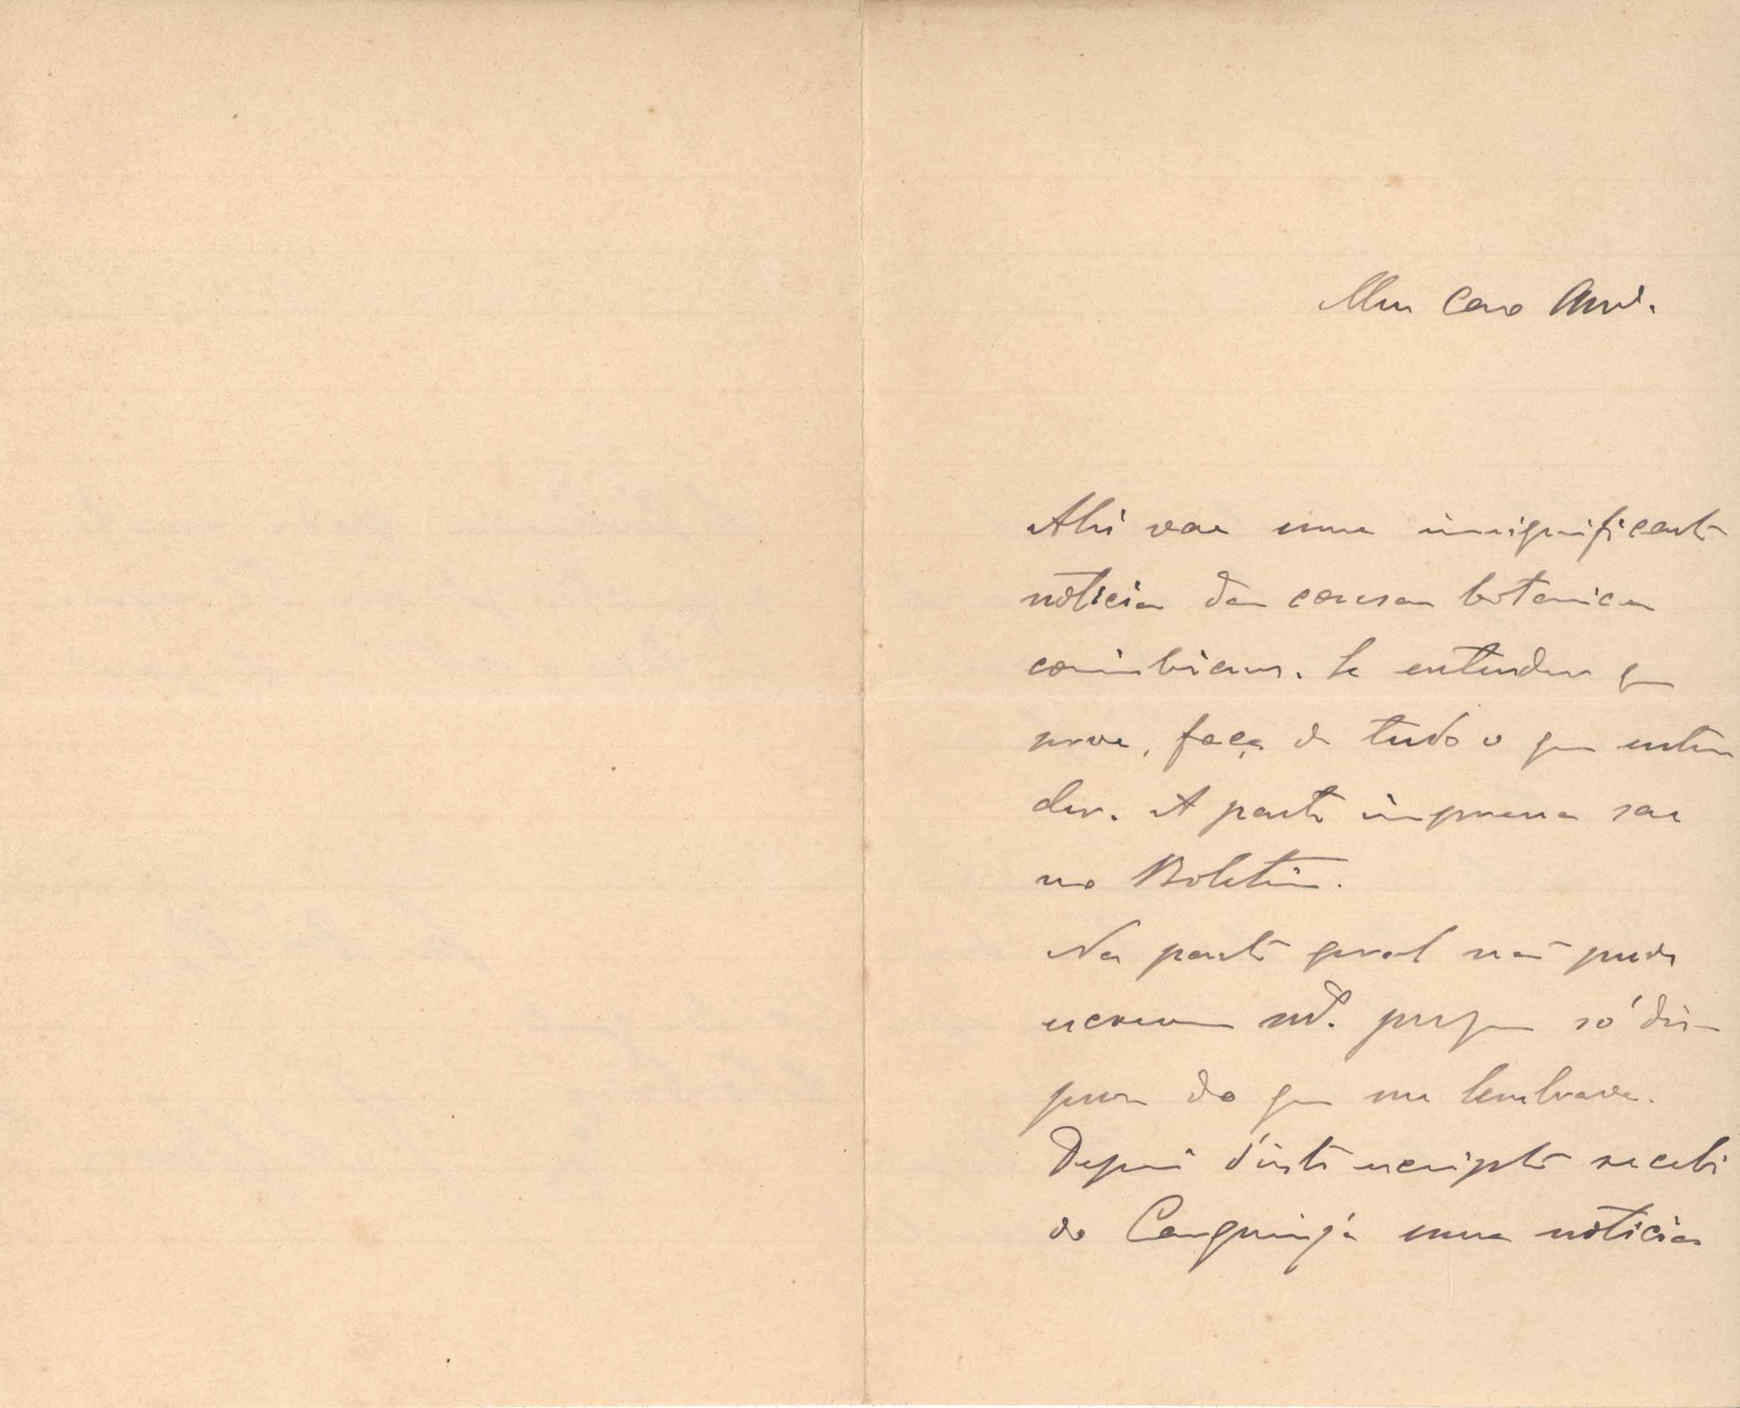 Meu Caro Amº.
Ahi vae uma insignificante
noticia das cousas botanicas
conimbricenses. Se entender que
serve, faça de tudo o que enten
der. A parte impressa sae
no Boletim.
Na parte geral não pude
escrever mtº. porque só dis-
puz do que me lembrava.
Depois d'isto escripto recebi
do uma noticia